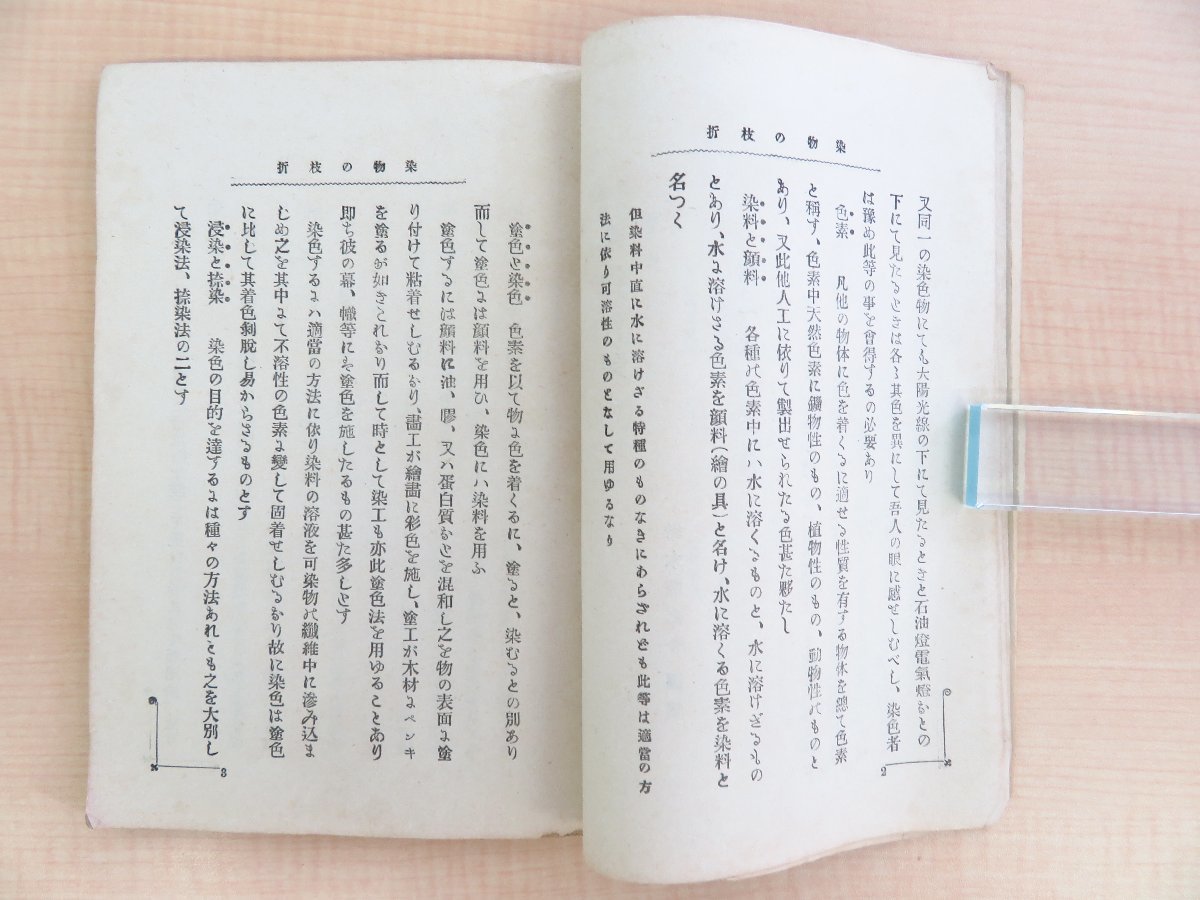 染物の枝折
又同一の染色物にても太陽光線の下にて見たるときと石油燈電氣燈などの
下にて見たるときは各〻其色を異にして吾人の眼に感せしむべし、染色者
は豫め此等の事を會得するの必要あり
色素 凡他の物体に色を着くるに適せる性質を有する物体を總て色素
と稱す、色素中天然色素に鑛物性のもの、植物性のもの、動物性のものと
あり、又此他人工に依りて製出せられたる色甚た夥たし
染料と顔料 各種の色素中にハ水に溶くるものと、水に溶けざるもの
とあり、水に溶けさる色素を顔料(繪の具)と名け、水に溶くる色素を染料と
名つく
但染料中直に水に溶けざる特種のものなきにあらざれども此等は適當の方
法に依り可溶性のものとなして用ゆるなり
2
染物の枝折
塗色と染色 色素を以て物に色を着くるに、塗ると、染むるとの別あり
而して塗色には顔料を用ひ、染色にハ染料を用ふ
塗色するには顔料に油、膠、又ハ蛋白質などを混和し之を物の表面に塗
り付けて粘着せしむるなり、畵工が繪畵に彩色を施し、塗工が木材にペンキ
を塗るが如きこれなり而して時として染工も亦此塗色法を用ゆることあり
即ち彼の幕、幟等にハ塗色を施したるもの甚た多しとす
染色するにハ適當の方法に依り染料の溶液を可染物の纖維中に滲み込ま
しめ之を其中にて不溶性の色素に變して固着せしむるなり故に染色は塗色
に比して其着色剝脫し易からさるものとす
浸染と捺染 染色の目的を達するには種々の方法あれとも之を大別し
て浸染法、捺染法の二とす
3